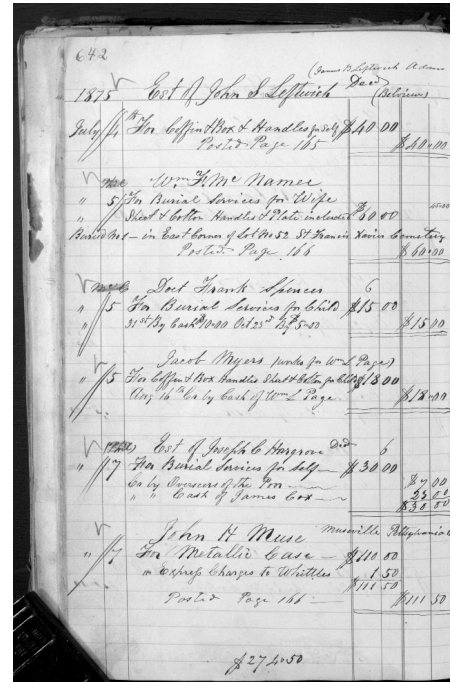 642
(James B Leftwich Adm
1875 Est of John S Leftwich Decd (Belview)
July 4th For Coffin & Box & Handles for Self $40.00
Posted Page 165 $40.00
Wm F. McNamee
" 5 For Burial Services for Wife
Sheet & Cotton Handles & Plate included $60 00
Buried No 1 - in East Corner of Lot No 52 St Francis Xavier Cemetery
Posted Page 166 $60.00
Doct Frank Spencer 6
" 5 For Burial Services for Child $15 00
" 31st By Cash $10.00 Oct 23rd By $5.00 $15 00
Jacob Myers (works for Wm L Page)
" 5 For Coffin & Box Handles Sheet & Cotton for Child $18 00
Aug 14th Cr by Cash of Wm L Page $18.00
Est of Joseph C Hargrove Decd 6
" 7 For Burial Services for Self $30 00
Cr by Overseers of the Poor $7 00
" " Cash of James Cox 23 00
$30 00
John H Muse Museville Pittsylvania
" 7 For Metallic Case - $110 00
" Express Charges to Whittles 1 50
$111 50
Posted Page 166 $111 50
$274.50